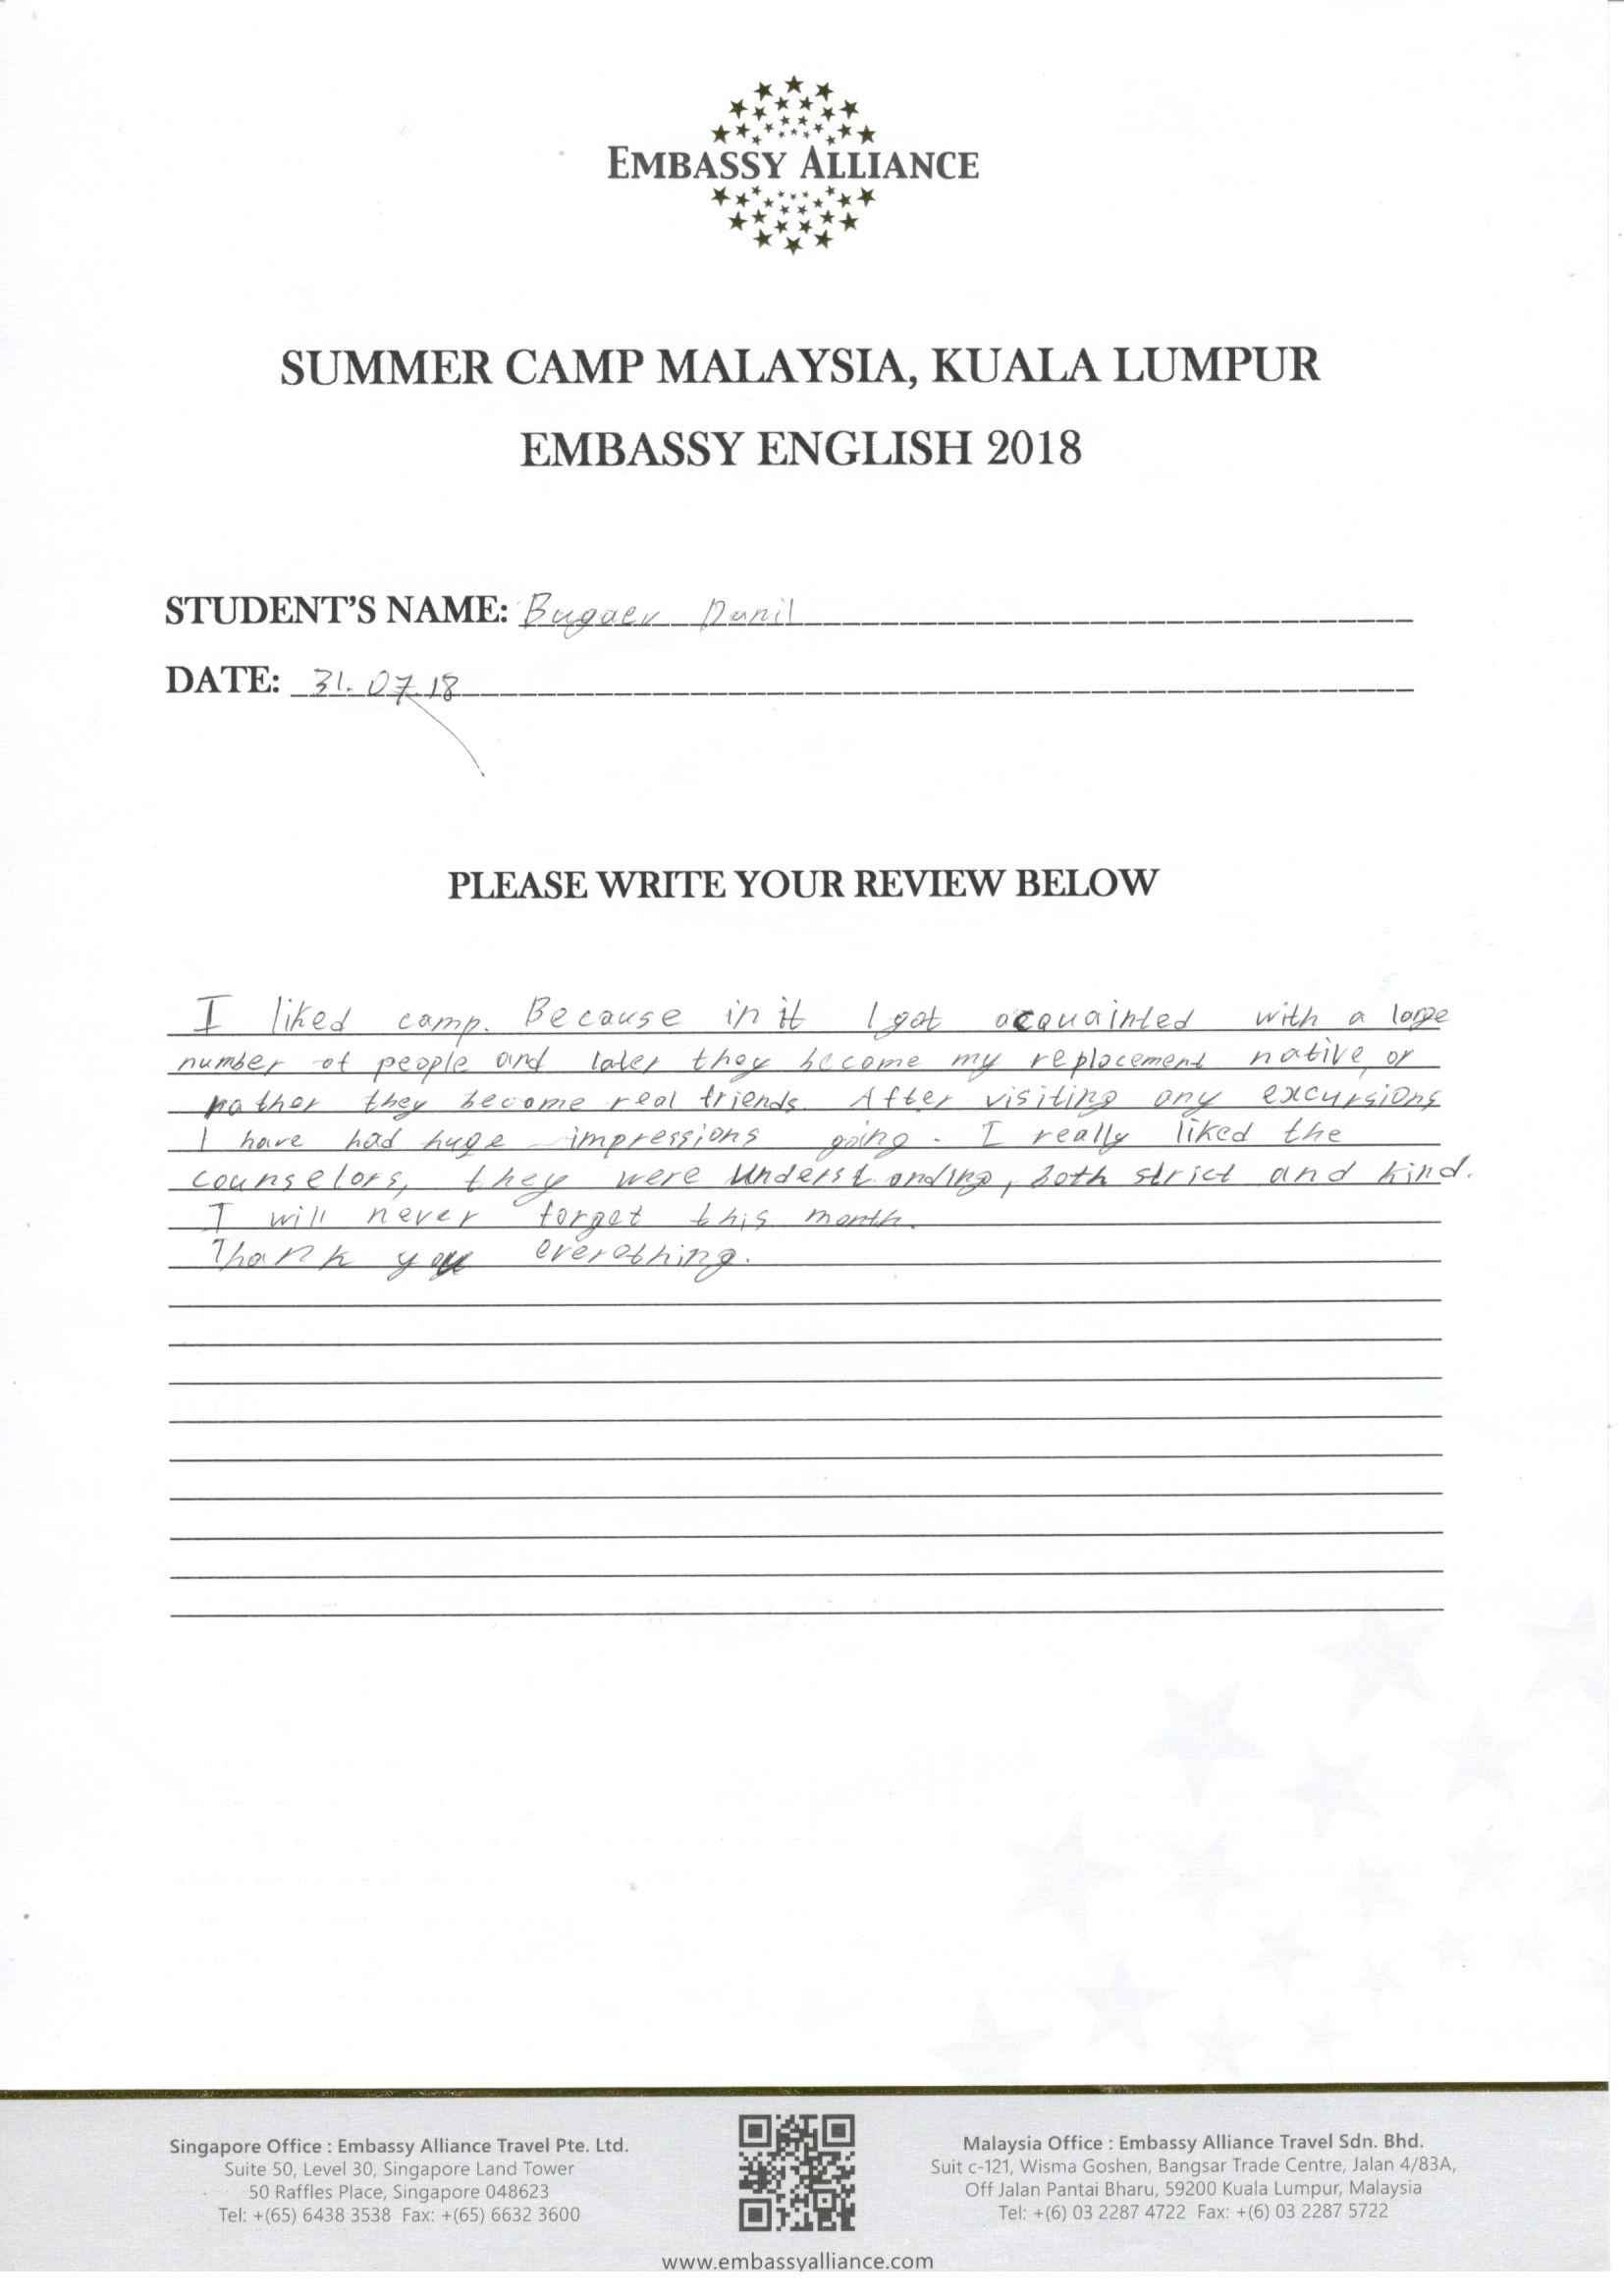 EMBASSY ALLIANCE
SUMMER CAMP MALAYSIA, KUALA LUMPUR
EMBASSY ENGLISH 2018
STUDENT'S NAME: Bugaev Danil
DATE: 31.07.18
PLEASE WRITE YOUR REVIEW BELOW
I liked camp. Because in it I got acquainted with a large
number of people and later they become my replacement native, or
rather they become real friends. After visiting any excursions
I have had huge impressions going. I really liked the
counselors, they were understanding, both strict and kind.
I will never forget this month.
Thank you everething.
Singapore Office : Embassy Alliance Travel Pte. Ltd.
Suite 50, Level 30, Singapore Land Tower
50 Raffles Place, Singapore 048623
Tel: +(65) 6438 3538 Fax: +(65) 6632 3600
Malaysia Office : Embassy Alliance Travel Sdn. Bhd.
Suit c-121, Wisma Goshen, Bangsar Trade Centre, Jalan 4/83A,
Off Jalan Pantai Bharu, 59200 Kuala Lumpur, Malaysia
Tel: +(6) 03 2287 4722 Fax: +(6) 03 2287 5722
www.embassyalliance.com